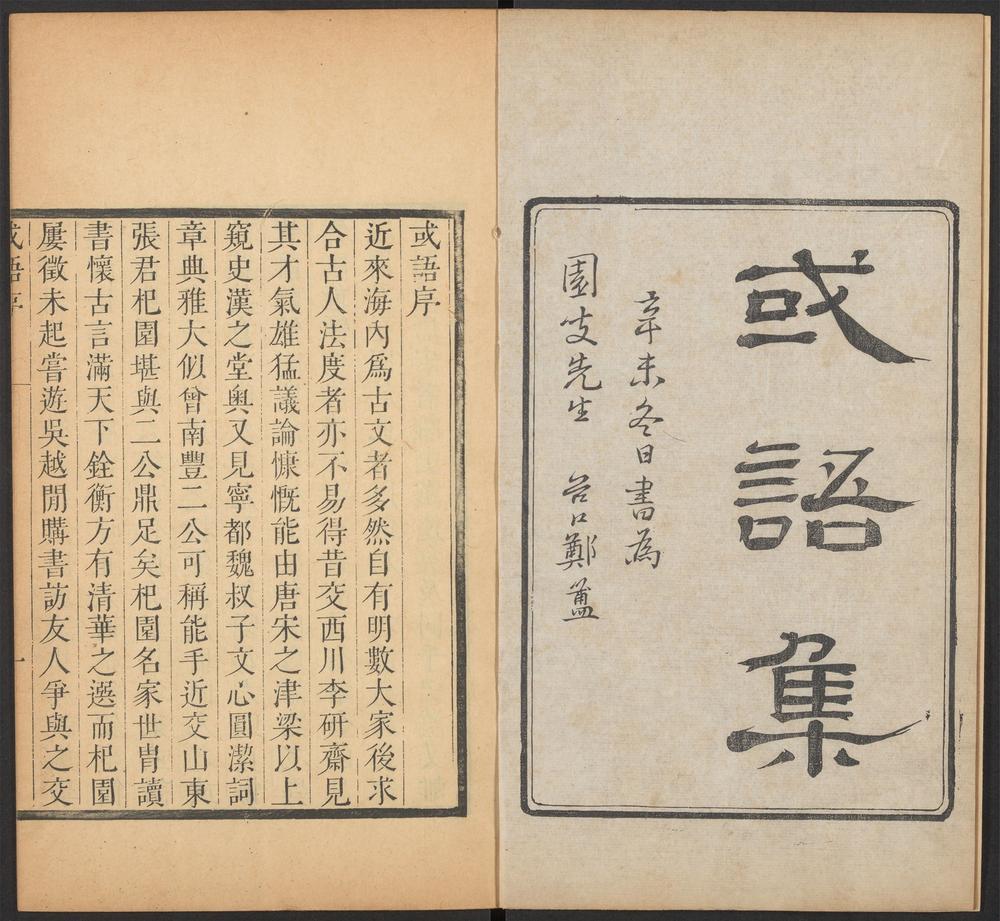 或語集
辛未冬日書為
園支先生 谷口鄭簠
或語序
近來海內爲古文者多然自有明數大家後求
合古人法度者亦不易得昔交西川李研齋見
其才氣雄猛議論慷慨能由唐宋之津梁以上
窺史漢之堂奧又見寧都魏叔子文心圓潔詞
章典雅大似曾南豐二公可稱能手近交山東
張君杞園堪與二公鼎足矣杞園名家世胄讀
書懷古言滿天下銓衡方有清華之選而杞園
屢徵未起嘗遊吳越閒購書訪友人爭與之交
或語序
一